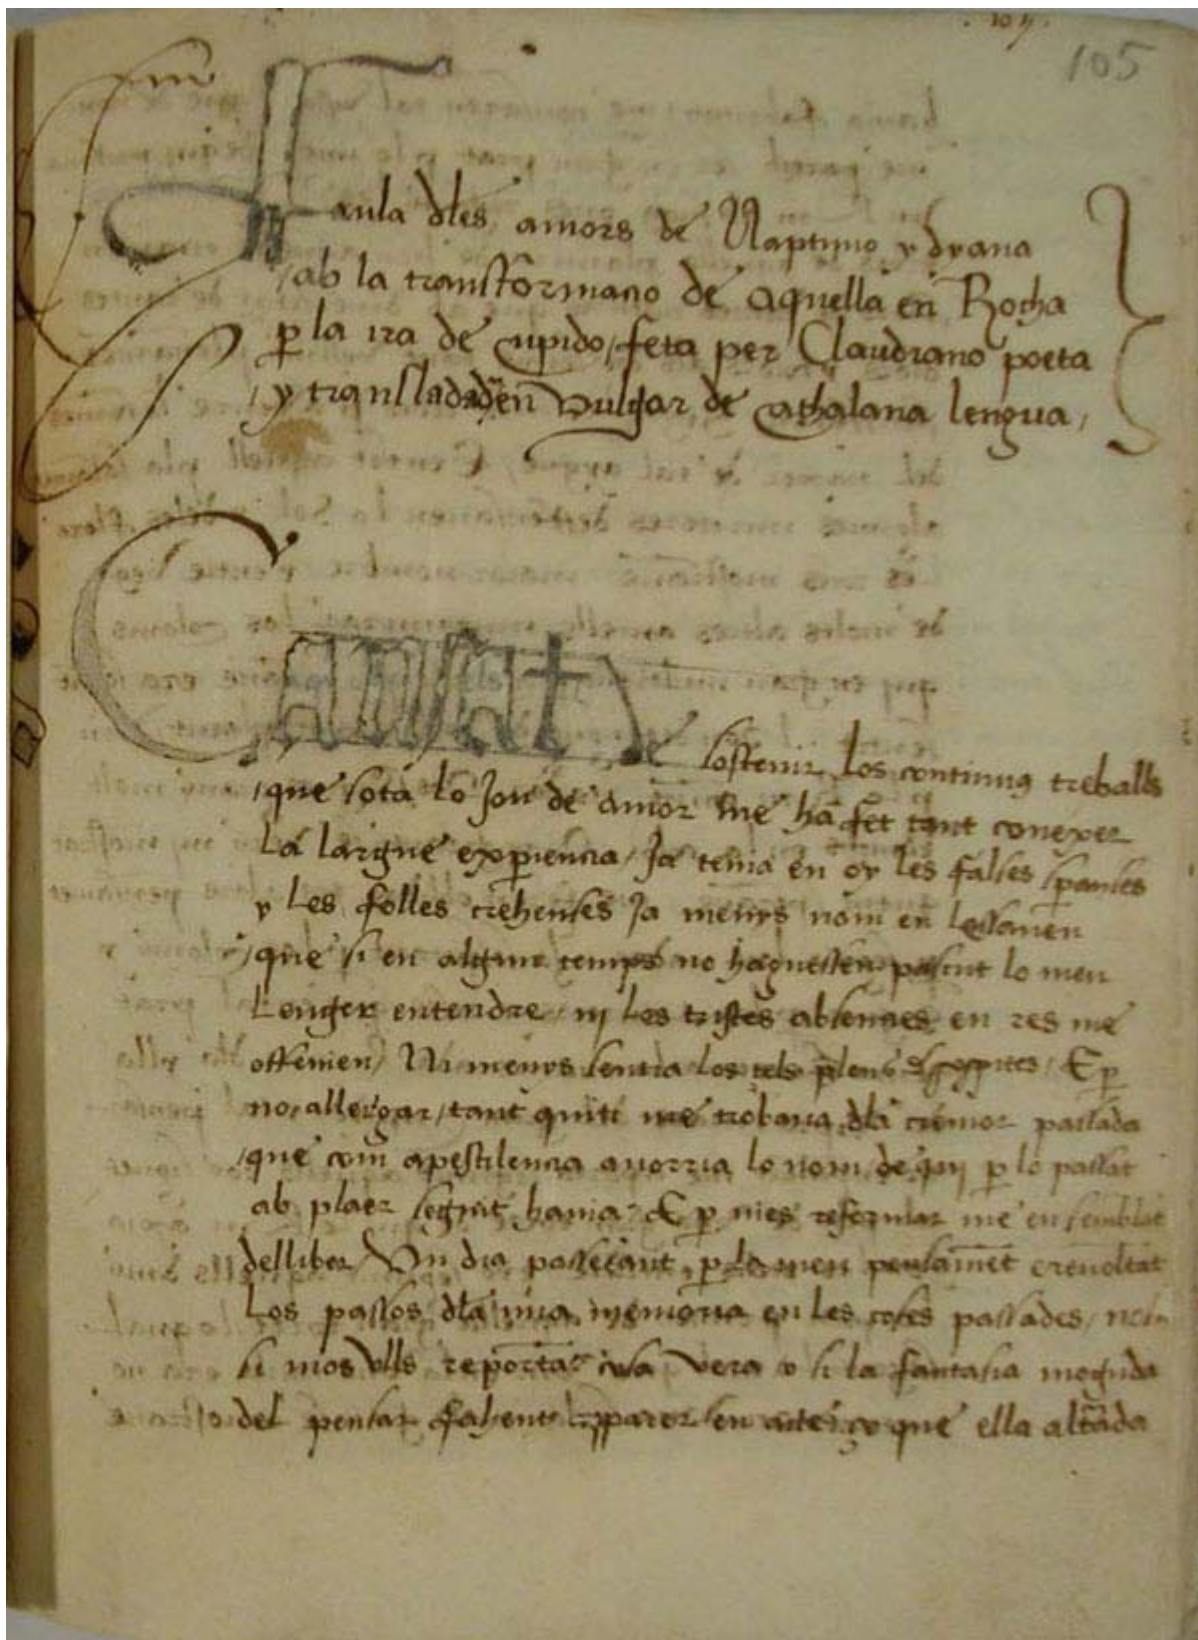 105
Faula dles amors de Naptuno y dyana
ab la transformatio de aquella en Rocha
p la ira de cupido / feta per Claudiano poeta
y transladada en vulgar de cathalana lengua /
Canssat de sostenir los continus treballs
que sota lo Jou de amor me ha fet tant conexer
La largue experiencia / Ja tenia en oy les falses sperances
y Les folles crehenses Ja menys nom en
que si en algun temps no haguessen pascut lo meu
Leuger entendre / ni Les tristes absencies en res me
offenien / Ni menys sentia los zels plens / E p
no allergar / tant quiti me trobava dla cremor passada
que com apestilencia avorria lo nom de qui p lo passat
ab plaer seguit havia / E p mes refermar me en semblat
delliber / Un dia passejant p lo meu pensament e revoltat
Los passos dla mia memoria en les coses passades / no
si mos ulls reportar cosa vera o si la fantasia moguda
del pensar fahent apparer en que ella altada